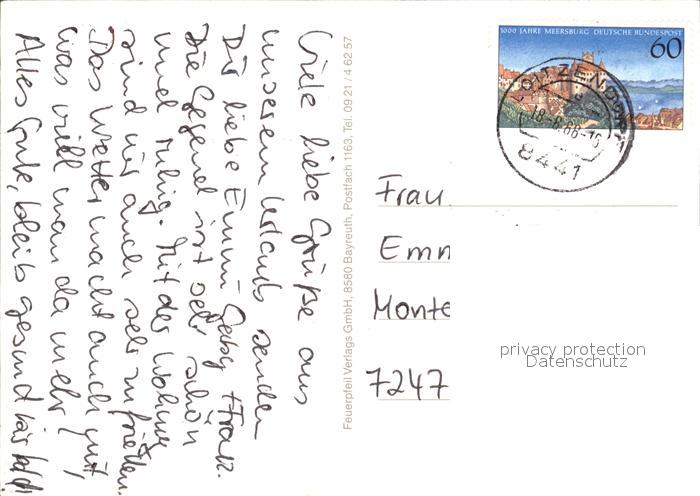 Viele liebe Grüße aus
unserem Urlaub senden
Dir liebe Emmi Gaby + Franz.
Die Gegend ist sehr schön
und ruhig. Mit der Wohnung
sind wir auch sehr zufrieden.
Das Wetter macht auch mit,
was will man da mehr!
Alles Gute, bleib gesund bis bald!
Feuerpfeil Verlags GmbH, 8580 Bayreuth, Postfach 1163, Tel. 09 21 / 4 62 57
1000 JAHRE MEERSBURG DEUTSCHE BUNDESPOST
60
18.-8.88-16
8441
Frau
Emm
Monte
7247
privacy protection
Datenschutz